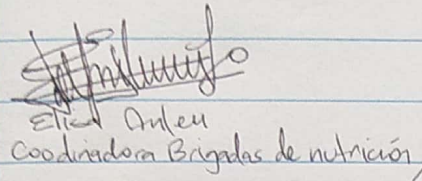 Elisa Anleu
Coodinadora Brigadas de nutrición